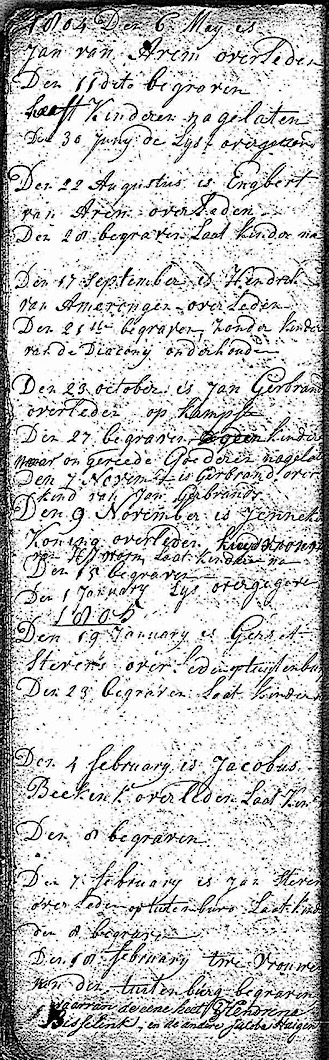 1804 Den 6 May is
Jan van Arem overleden
Den 11 dito begraven
heeft Kinderen nagelaten
Den 30 Juny de Lyst overgegeven
Den 22 Augustus is Engbert
van Arem overleden
Den 28 begraven Laat kinder na
Den 17 September is Hendrik
van Amerongen overleden
Den 21ste begraven zonder kinder
van de Diacony onderhoude
Den 23 october is Jan Gerbrand
overleden op
Den 27 begraven geen kindere
maar ongereede Goederen nagela
Den 7 Novemb is Gerbrand over
kind van Jan Gerbrands
Den 9 November is Jenneke
Koning overleden
van Laat kinderen na
Den 15 begraven
Den 1 January Lys overgegeve
1805
Den 19 January is Gerret
Stevens overleden op tuijtenbur
Den 23 begraven Laat kinder
Den 4 february is Jacobus
Beekenk overleden Laat Kin
Den 8 begraven
Den 7 february is Jan Steven
overleden op tutenburg Laat kind
den 8 begraven
Den 18 february twe Vrouwe
van den tuitenburg begraven
waarvan de eene heet Hendrena
Besselink, en de andere